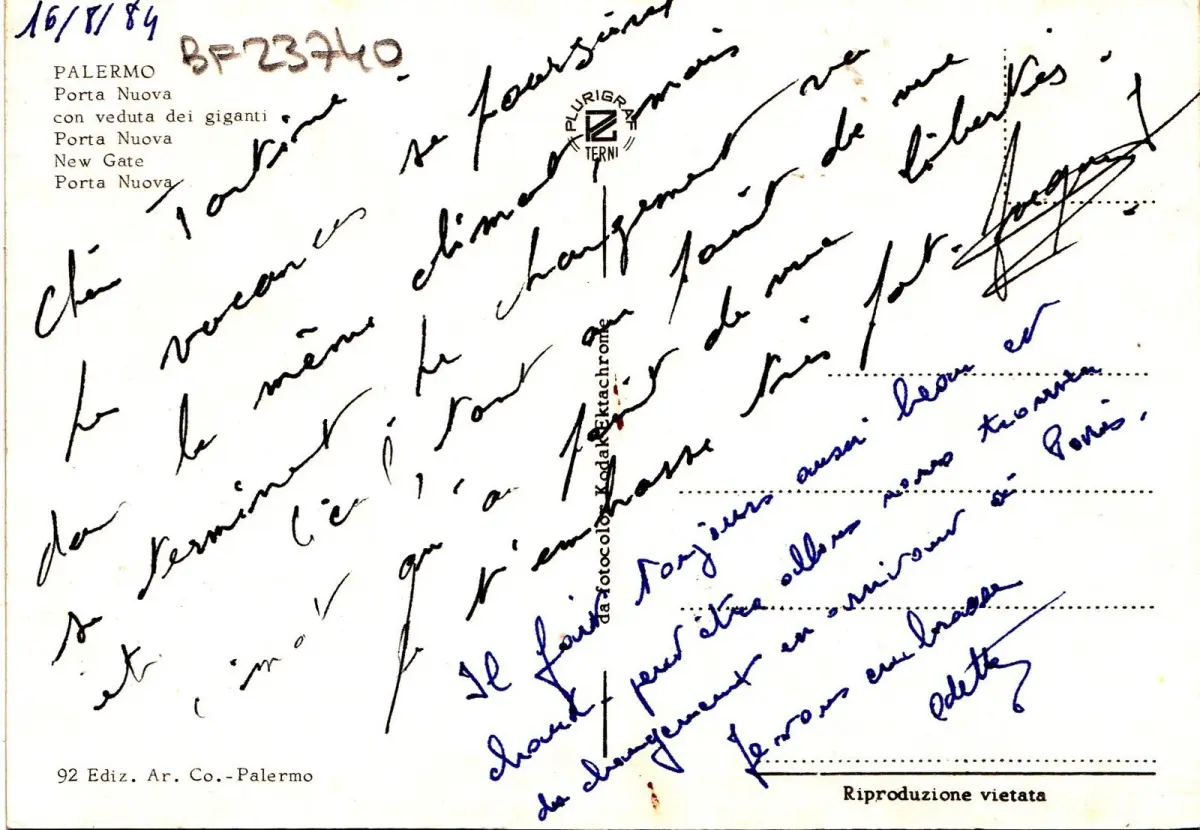 16/8/84
BF23740
PALERMO
Porta Nuova
con veduta dei giganti
Porta Nuova
New Gate
Porta Nuova
PLURIGRAF
TERNI
Chère
Les vacances se poursuivent
dans le même climat, mais
se terminent. Le changement va
et tant au point de vue
qu'au point de vue libertés.
Je t'embrasse très fort.
Jacques
Il fait toujours aussi beau et
chaud - peut être allons nous trouver
du changement en arrivant à Paris.
Je vous embrasse
Odette
da fotocolor Kodak Ektachrome
92 Ediz. Ar. Co.-Palermo
Riproduzione vietata